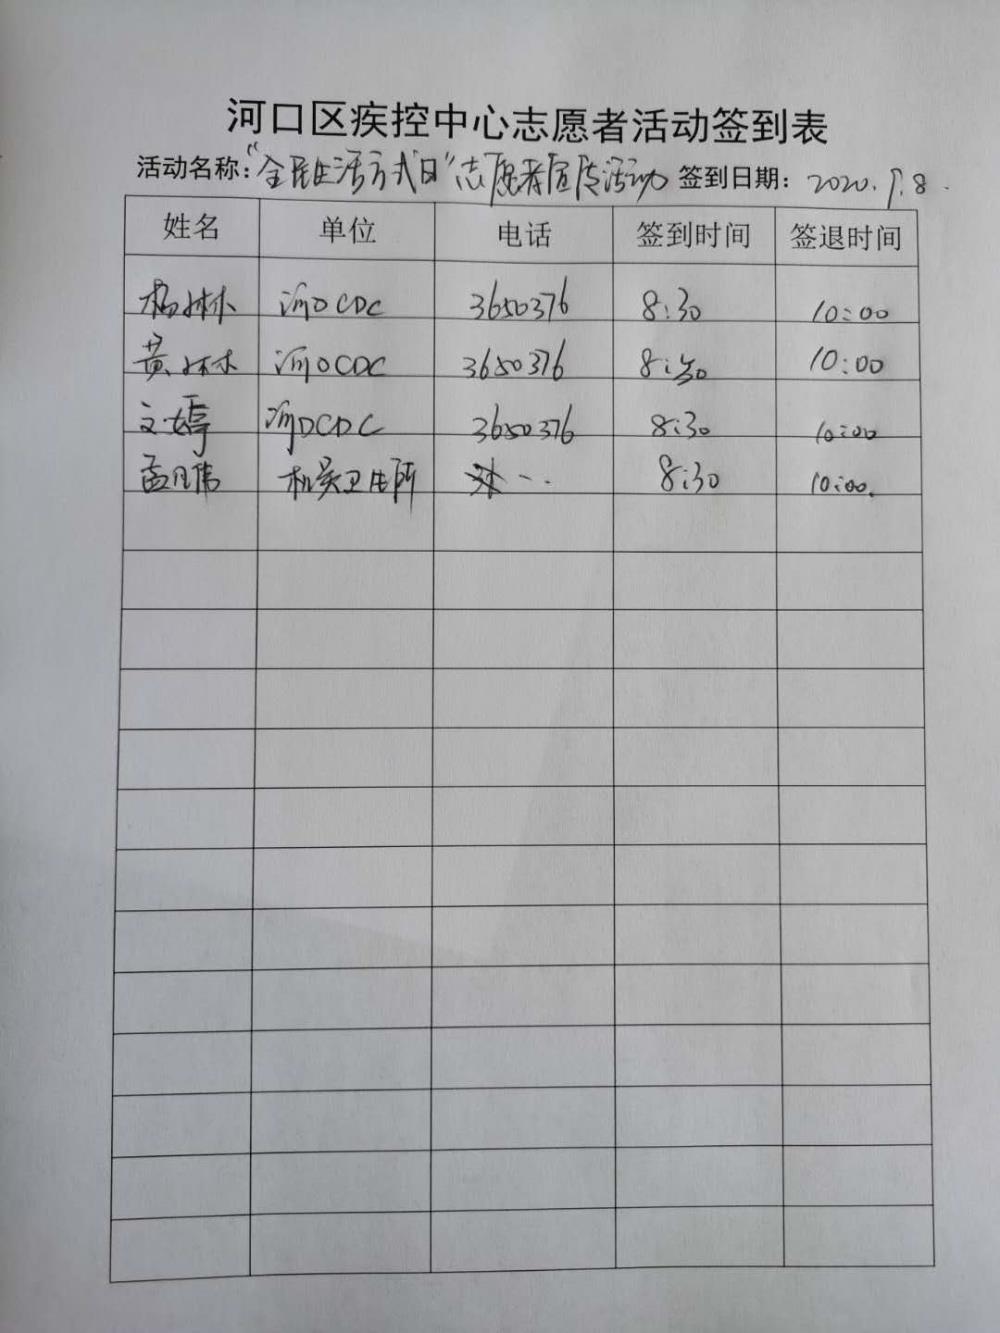 河口区疾控中心志愿者活动签到表
活动名称："全民生活方式日"志愿者宣传活动 签到日期：2020.9.8.
姓名 单位 电话 签到时间 签退时间
杨林林 河口CDC 3650376 8:30 10:00
黄林林 河口CDC 3650376 8:30 10:00
文婷 河口CDC 3650376 8:30 10:00
孟凡伟 机关卫生所 8:30 10:00.